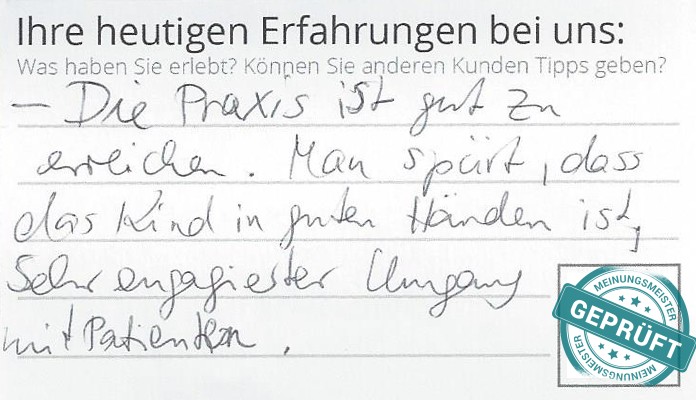 Ihre heutigen Erfahrungen bei uns:
Was haben Sie erlebt? Können Sie anderen Kunden Tipps geben?
– Die Praxis ist gut zu
erreichen. Man spürt, dass
das Kind in guten Händen ist,
Sehr engagierter Umgang
mit Patienten.
MEINUNGSMEISTER
GEPRÜFT
MEINUNGSMEISTER